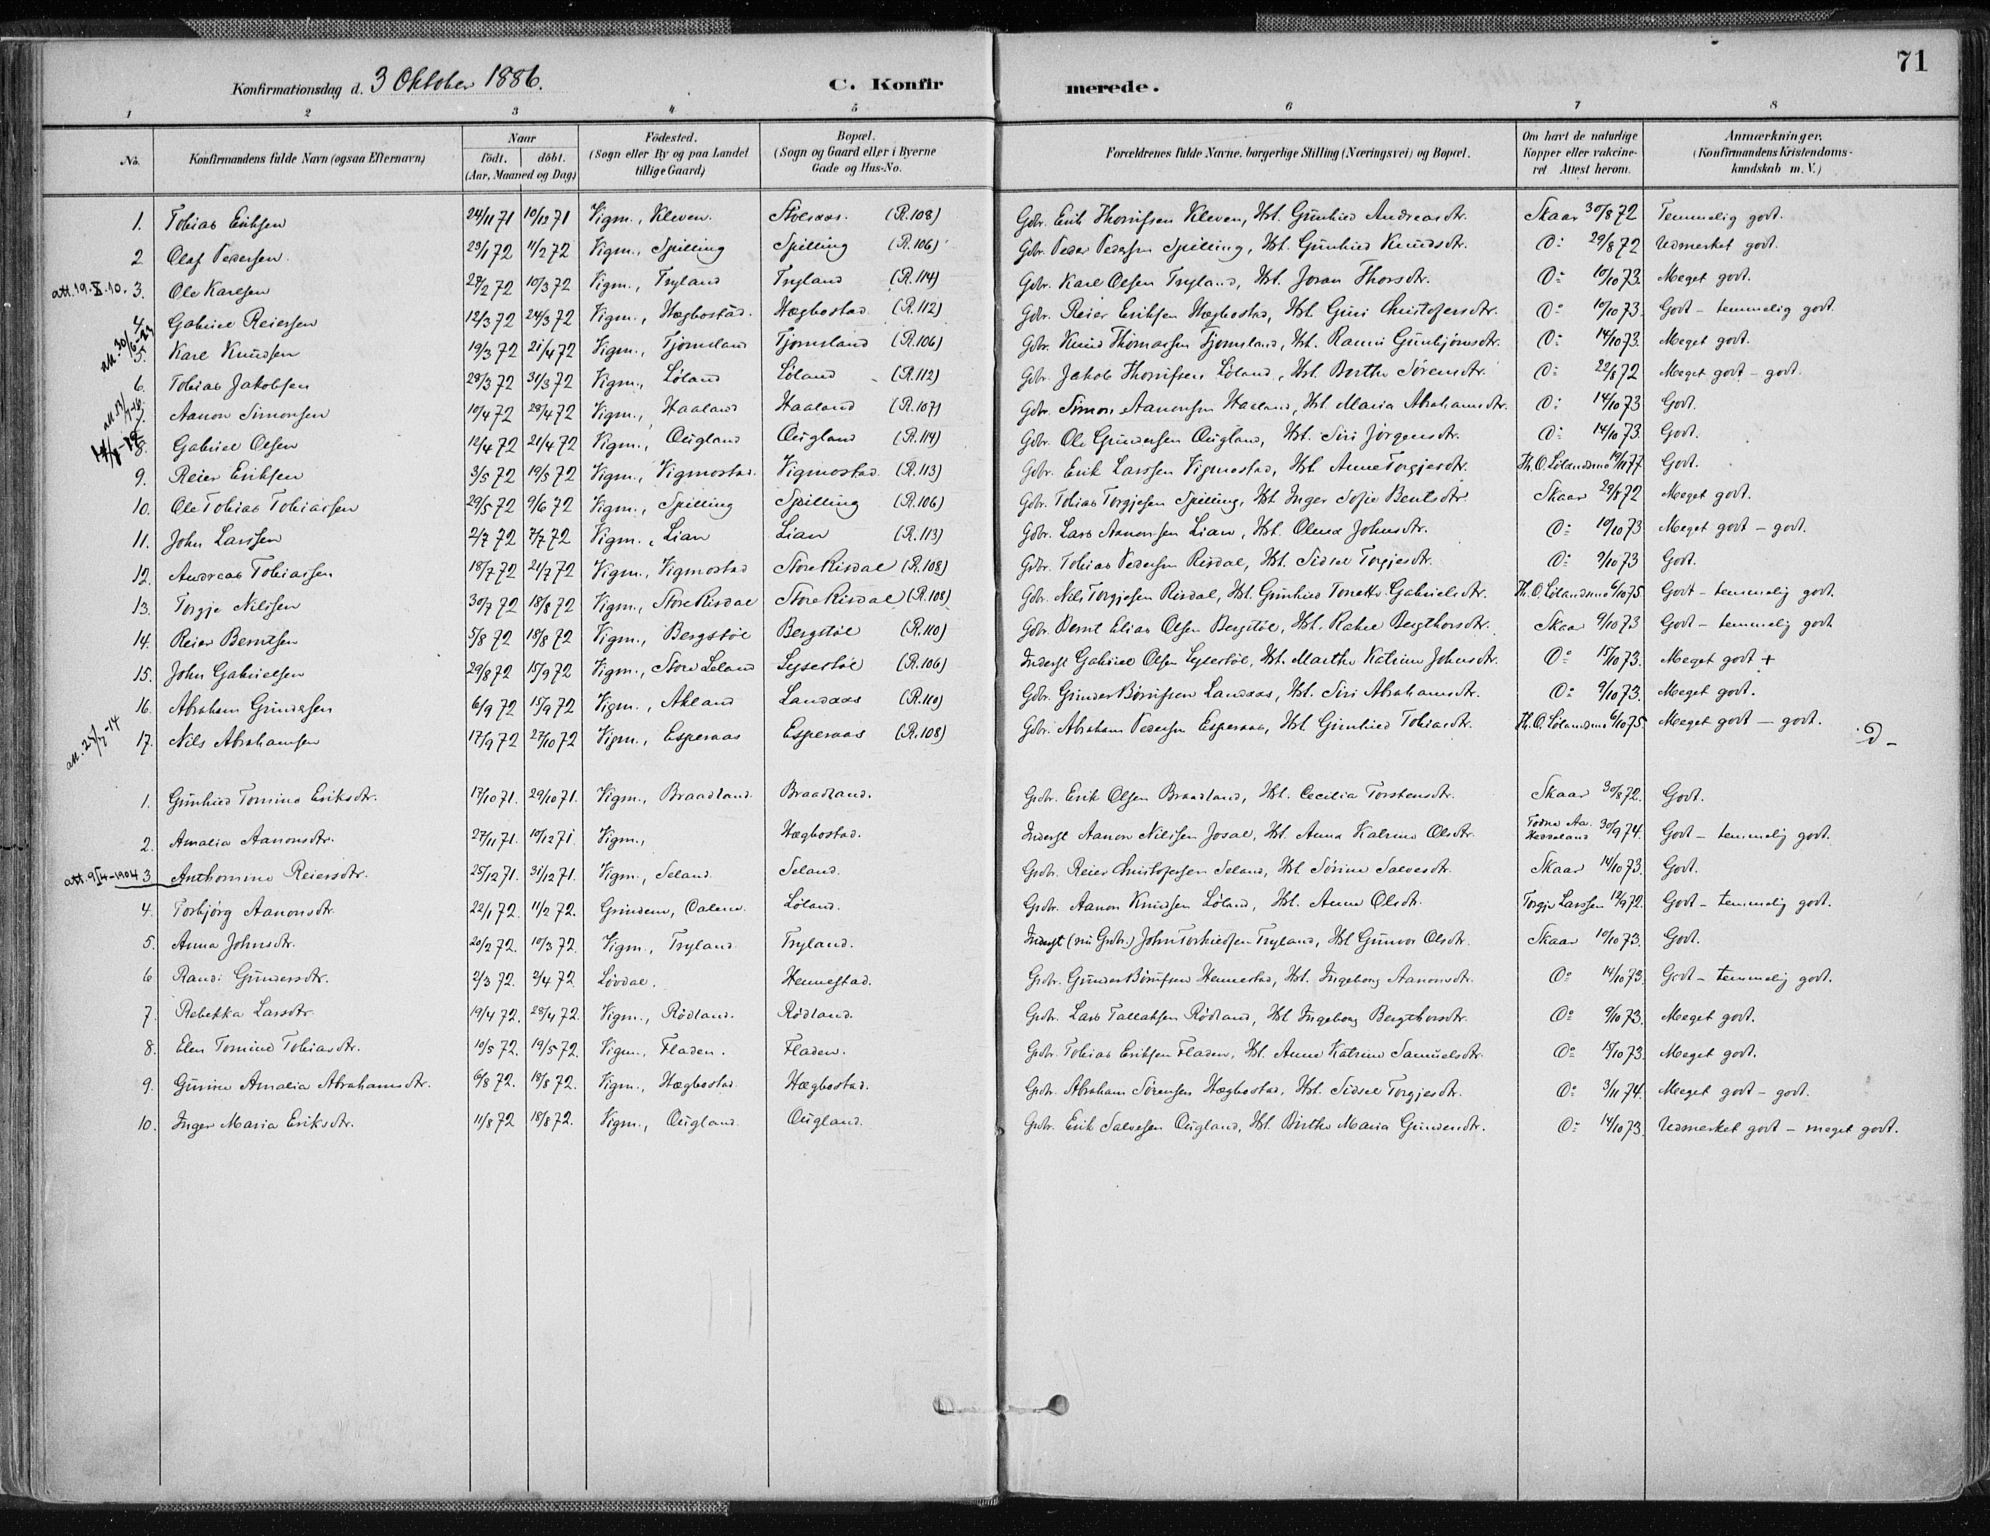 71
Konfirmationsdag d. 3 Oktober 1886. C. Konfirmerede.
1 2 3 4 5 6 7 8
No. Konfirmandens fulde Navn (ogsaa Efternavn) Naar født. døbt. (Aar, Maaned og Dag) Fødested. (Sogn eller By og paa Landet tillige Gaard) Bopæl. (Sogn og Gaard eller i Byerne Gade og Hus-No. Forældrenes fulde Navne, borgerlige Stilling (Næringsvei) og Bopæl. Om havt de naturlige Kopper eller vakcineret Attest herom. Anmærkninger. (Konfirmandens Kristendomskundskab m. V.)
1. Tobias Eriksen 24/11 71 10/12 71 Vigm., Kleven. Stølsaas. (R.108) Gdbr. Erik Thomssen Kleven, Hst. Gunhild Andreasdtr. Skaar 30/8 72 Temmelig godt.
2 Olaf Pedersen. 23/1 72 11/2 72 Vigm., Spilling Spilling (R.106) Gdbr. Peder Pedersen Spilling, Hst. Gunhild Knudsdtr. Do 29/8 72 Udmerket godt.
att. 19.X.10. 3. Ole Karlsen 28/2 72 10/3 72 Vigm., Tryland Tryland (R.114) Gdbr. Karl Olsen Tryland, Hst. Joran Thorsdtr. Do 10/10 73. Meget godt.
4. Gabriel Reiersen 12/3 72 24/3 72 Vigm., Hægbostad. Hægbostad (R.112) Gdbr. Reier Eriksen Hægbostad, Hst. Guri Christofersdtr. Do 10/10 73. Godt - temmelig godt.
att. 30/6-23 5. Karl Knudsen 19/3 72 21/4 72 Vigm., Tjomsland Tjomsland (R.106) Gdbr. Knud Thomassen Tjomsland, Hst. Ranni Gunbjørnsdtr. Do 14/10 73. Meget godt.
6. Tobias Jakobsen 29/3 72 31/3 72 Vigm., Løland Løland (R.112) Gdbr. Jakob Thomssen Løland, Hst. Berthe Sørensdtr. Do 22/8 72 Meget godt - godt.
7. Aanon Simonsen 10/4 72 28/4 72 Vigm., Haaland Haaland (R.107) Gdbr. Simon Aanonsen Haaland, Hst. Maria Abrahamsdtr. Do 14/10 73 Godt.
14/8-12 8. Gabriel Olsen 12/4 72 21/4 72 Vigm., Øugland Øugland (R.114) Gdbr. Ole Gundersen Øugland, Hst. Siri Jørgensdtr. Do 14/10 73. Godt.
9. Reier Eriksen 3/5 72 19/5 72 Vigm., Vigmostad. Vigmostad. (R.113) Gdbr. Erik Larssen Vigmostad, Hst. Anne Torgjesdtr. Th. O. Lølandsmo 19/11 77 Godt.
10. Ole Tobias Tobiassen 29/5 72 9/6 72 Vigm., Spilling Spilling (R.106) Gdbr. Tobias Torgjesen Spilling, Hst. Inger Sofie Bentsdtr. Skaar 29/8 72 Meget godt.
11. John Larssen 2/7 72 7/7 72 Vigm., Lian Lian (R.113) Gdbr. Lars Aanonsen Lian, Hst. Olena Johnsdtr. Do 10/10 73 Meget godt - godt.
12. Andreas Tobiassen 18/7 72 21/7 72 Vigm., Vigmostad Store Risdal (R.108) Gdbr. Tobias Pedersen Risdal, Hst. Sidsel Torgjesdtr. Do 9/10 73 Godt.
13. Torgje Nilssen 30/7 72 18/8 72 Vigm., Store Risdal Store Risdal (R.108) Gdbr. Nils Torgjesen Risdal, Hst. Gunhild Tonette Gabrielsdtr. Th. O. Lølandsmo 6/10 75. Godt - temmelig godt.
14. Reier Berntsen 5/8 72 18/8 72 Vigm., Bergstøl Bergstøl (R.110) Gdbr. Bernt Elias Olsen Bergstøl, Hst. Rakel Bergthorsdtr. Skaar 9/10 73 Godt - temmelig godt
15. John Gabrielsen 29/8 72 15/9 72 Vigm., Store Seland Lysestøl (R.106) Inderst Gabriel Olsen Lysestøl, Hst. Marthe Katrine Johnsdtr. Do 15/10 73. Meget godt +
16. Abraham Gundersen 6/9 72 15/9 72 Vigm., Akland Landaas (R.110) Gdbr. Gunder Bønissen Landaas, Hst. Siri Abrahamsdtr. Do 9/10 73. Meget godt.
17. Nils Abrahamsen 17/9 72 27/10 72 Vigm., Esperaas Esperaas (R.108) Gdbr. Abraham Pedersen Esperaas, Hst. Gunhild Tobiasdtr. Th. O. Lølandsmo 6/10 75. Meget godt - godt.
1. Gunhild Tomine Eriksdtr. 17/10 71. 29/10 71. Vigm., Braadland. Braadland. Gdbr. Erik Olsen Braadland, Hst. Cecilia Torstensdtr. Skaar 30/8 72. Godt.
2. Amalia Aanonsdtr. 27/11 71. 10/12 71 Vigm., Hægbostad. Inderst Aanon Nilssen Josal, Hst. Anna Katrine Olsdtr. Heddeland 30/9 74. Godt - temmelig godt.
att. 9/4-1904 3. Anthomine Reiersdtr. 25/12 71. 31/12 71. Vigm., Seland. Seland. Gdbr. Reier Christofersen Seland, Hst. Sørine Salvesdtr. Skaar 14/10 73. Godt.
4. Torbjørg Aanonsdtr. 22/1 72. 11/2 72. Grindem, Løland. Gdbr. Aanon Knudsen Løland, Hst. Anne Olsdtr. Torgje Larssen 12/9 72. Godt - temmelig godt.
5. Anna Johnsdtr. 20/2 72. 10/3 72. Vigm., Tryland Tryland. Inderst (nu Gdbr.) John Torkildsen Tryland, Hst. Gunvor Olsdtr. Skaar 10/10 73. Godt.
6 Randi Gundersdtr. 2/3 72. 3/4 72 Løvdal. Hennestad. Gdbr. Gunder Bønissen Hennestad, Hst. Ingeborg Aanonsdtr. Do 14/10 73. Godt - temmelig godt.
7. Rebekka Larsdtr. 19/4 72. 28/4 72. Vigm., Rødland. Rødland. Gdbr. Lars Tallaksen Rødland, Hst. Ingeborg Bergthorsdtr. Do 9/10 73. Meget godt.
8. Elen Tomine Tobiasdtr. 10/5 72. 19/5 72. Vigm., Fladen. Fladen. Gdbr. Tobias Eriksen Fladen, Hst. Anne Katrine Samuelsdtr. Do 15/10 73. Meget godt.
9. Gurine Amalia Abrahamsdtr. 6/8 72. 18/8 72. Vigm., Hægbostad. Hægbostad. Gdbr. Abraham Sørensen Hægbostad, Hst. Sidsel Torgjesdtr. Do 3/11 74. Meget godt - godt.
10. Inger Maria Eriksdtr. 11/8 72 18/8 72. Vigm., Øugland. Øugland. Gdbr. Erik Salvesen Øugland, Hst. Birthe Maria Gundersdtr. Do 14/10 73. Udmerket godt - meget godt.